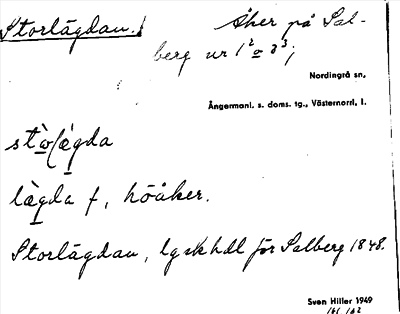 Storlägdan.
Åker på Sal-
berg nr 1² o 3³;
Nordingrå sn,
Ångermanl. s. doms. tg., Västernorrl. l.
lägda f, höåker.
Storlägdan, lgskhdl för Salberg 1848.
Sven Hiller 1949